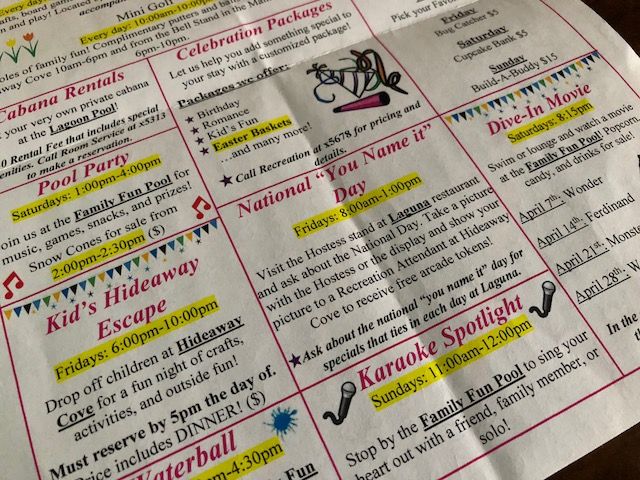 craft, board gam
and play! Located o
accompan
Mini Golf
Every day: 10:00am-10:00
oles of family fun! Complimentary putters and ball
away Cove 10am-6pm and from the Bell Stand in the Main
6pm-10pm.
Cabana Rentals
your very own private cabana
at the Lagoon Pool!
0 Rental Fee that includes special
enities. Call Room Service at x5313
to make a reservation.
Pool Party
Saturdays: 1:00pm-4:00pm
Join us at the Family Fun Pool for
music, games, snacks, and prizes!
Snow Cones for sale from
2:00pm-2:30pm ($)
Kid's Hideaway
Escape
Fridays: 6:00pm-10:00pm
Drop off children at Hideaway
Cove for a fun night of crafts,
activities, and outside fun!
Must reserve by 5pm the day of.
Price includes DINNER! ($)
Waterball
-4:30pm
Fun
Celebration Packages
Let us help you add something special to
your stay with a customized package!
Packages we offer:
Birthday
Romance
Kid's Fun
Easter Baskets
...and many more!
Call Recreation at x5678 for pricing and
details.
National "You Name it"
Day
Fridays: 8:00am-1:00pm
Visit the Hostess stand at Laguna restaurant
and ask about the National Day. Take a picture
with the Hostess or the display and show your
picture to a Recreation Attendant at Hideaway
Cove to receive free arcade tokens!
Ask about the national "you name it" day for
specials that ties in each day at Laguna.
Karaoke Spotlight
Sundays: 11:00am-12:00pm
Stop by the Family Fun Pool to sing your
heart out with a friend, family member, or
solo!
Pick your Favo
Friday
Bug Catcher $5
Saturday
Cupcake Bank $5
Sunday
Build-A-Buddy $15
Dive-In Movie
Saturdays: 8:15pm
Swim or lounge and watch a movie
at the Family Fun Pool! Popcorn
candy, and drinks for sale!
April 7th: Wonder
April 14th: Ferdinand
April 21st: Monst
April 28th: W
In the